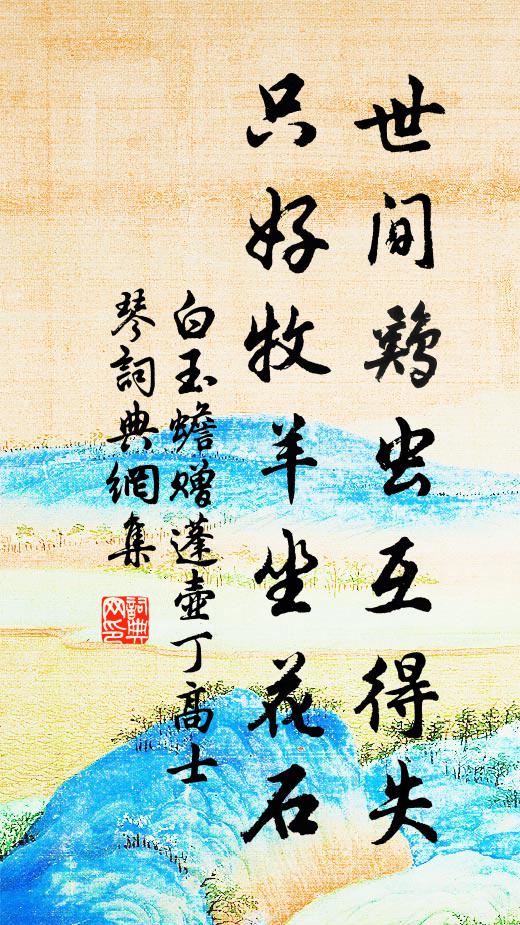 世间鸡虫互得失
只好牧羊坐花石
白玉蟾赠蓬壶丁高士
琴詞典網集
詞典网印